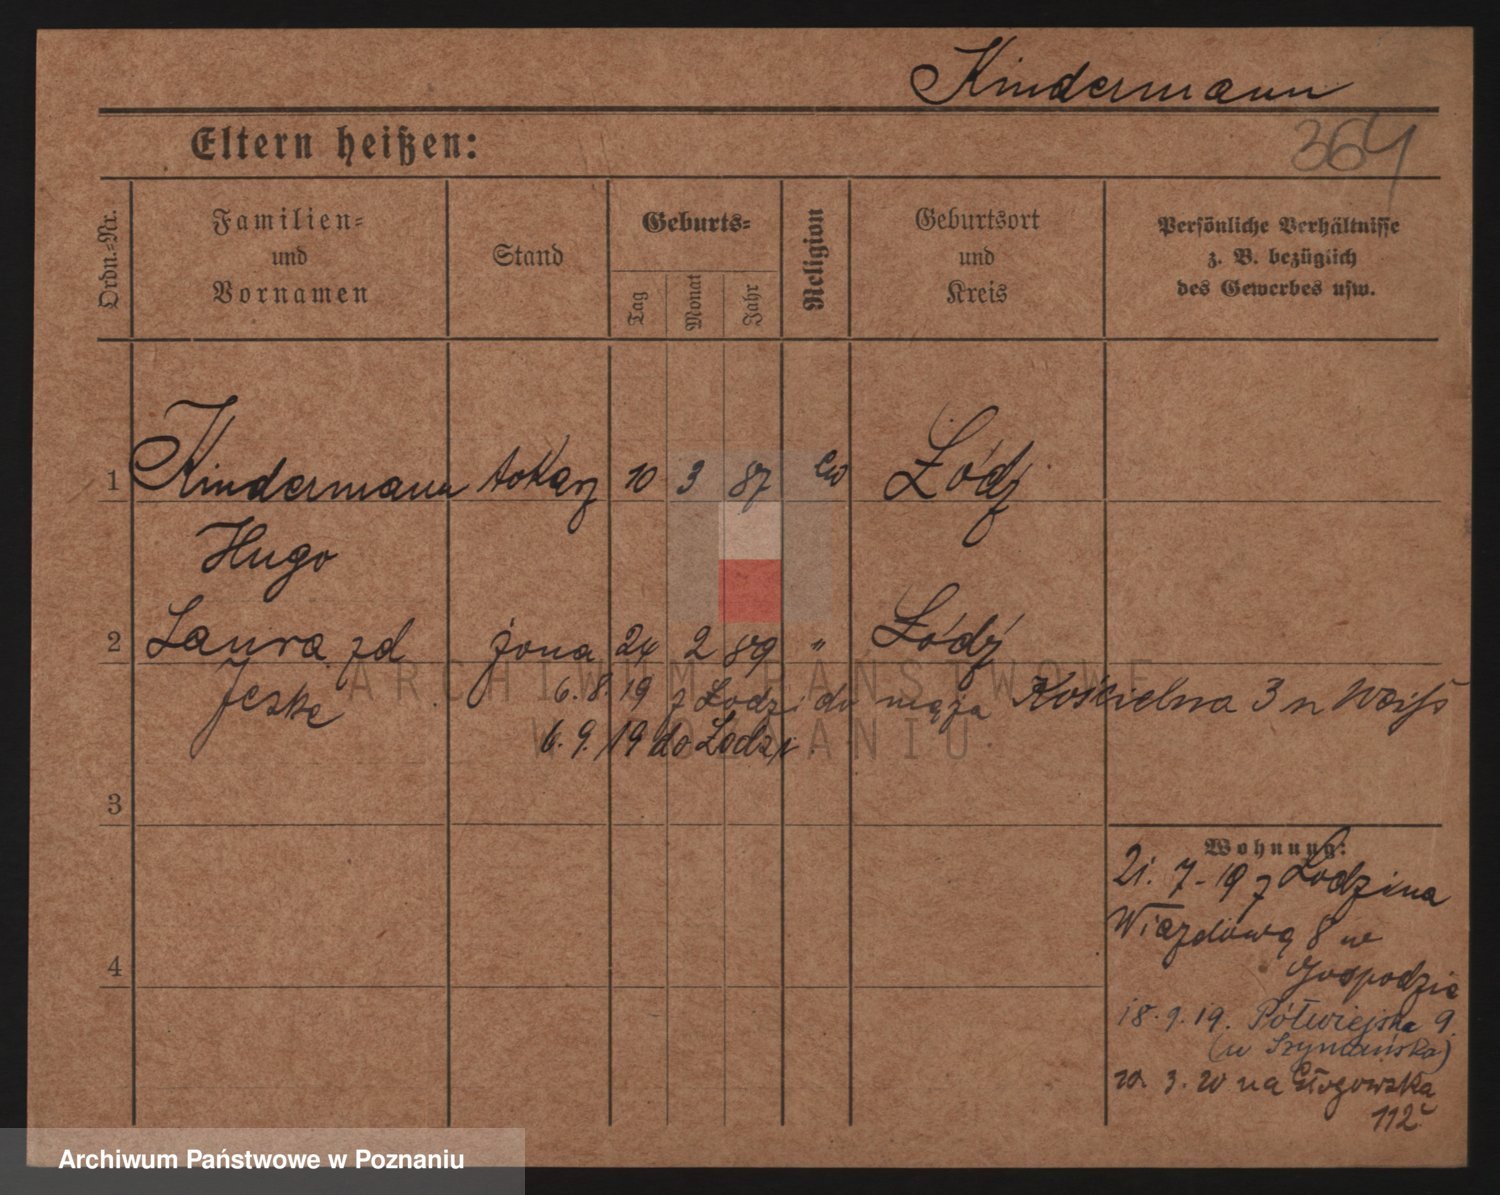 Kindermann
364
Eltern heißen:
Ordn.-Nr.
Familien-
und
Vornamen
Stand
Geburts-
Tag
Monat
Jahr
Religion
Geburtsort
und
Kreis
Persönliche Verhältnisse
z. B. bezüglich
des Gewerbes usw.
1 Kindermann tokarz 10 3 87 ew Łódź
Hugo
2 Laura zd żona 24 2 89 " Łódź
Jeske
6.8.19 z Łodzi do męża Kościelna 3 n Weiss
6.9.19 do Łodzi
3
4
Wohnung:
21. 7-19 z Łodzi na
Wiazdową 8 w
Gospodzie
18.9.19. Półwiejska 9.
(u Szymańska)
3. 20 na Głogowska
112
ARCHIWUM PAŃSTWOWE
W POZNANIU
Archiwum Państwowe w Poznaniu